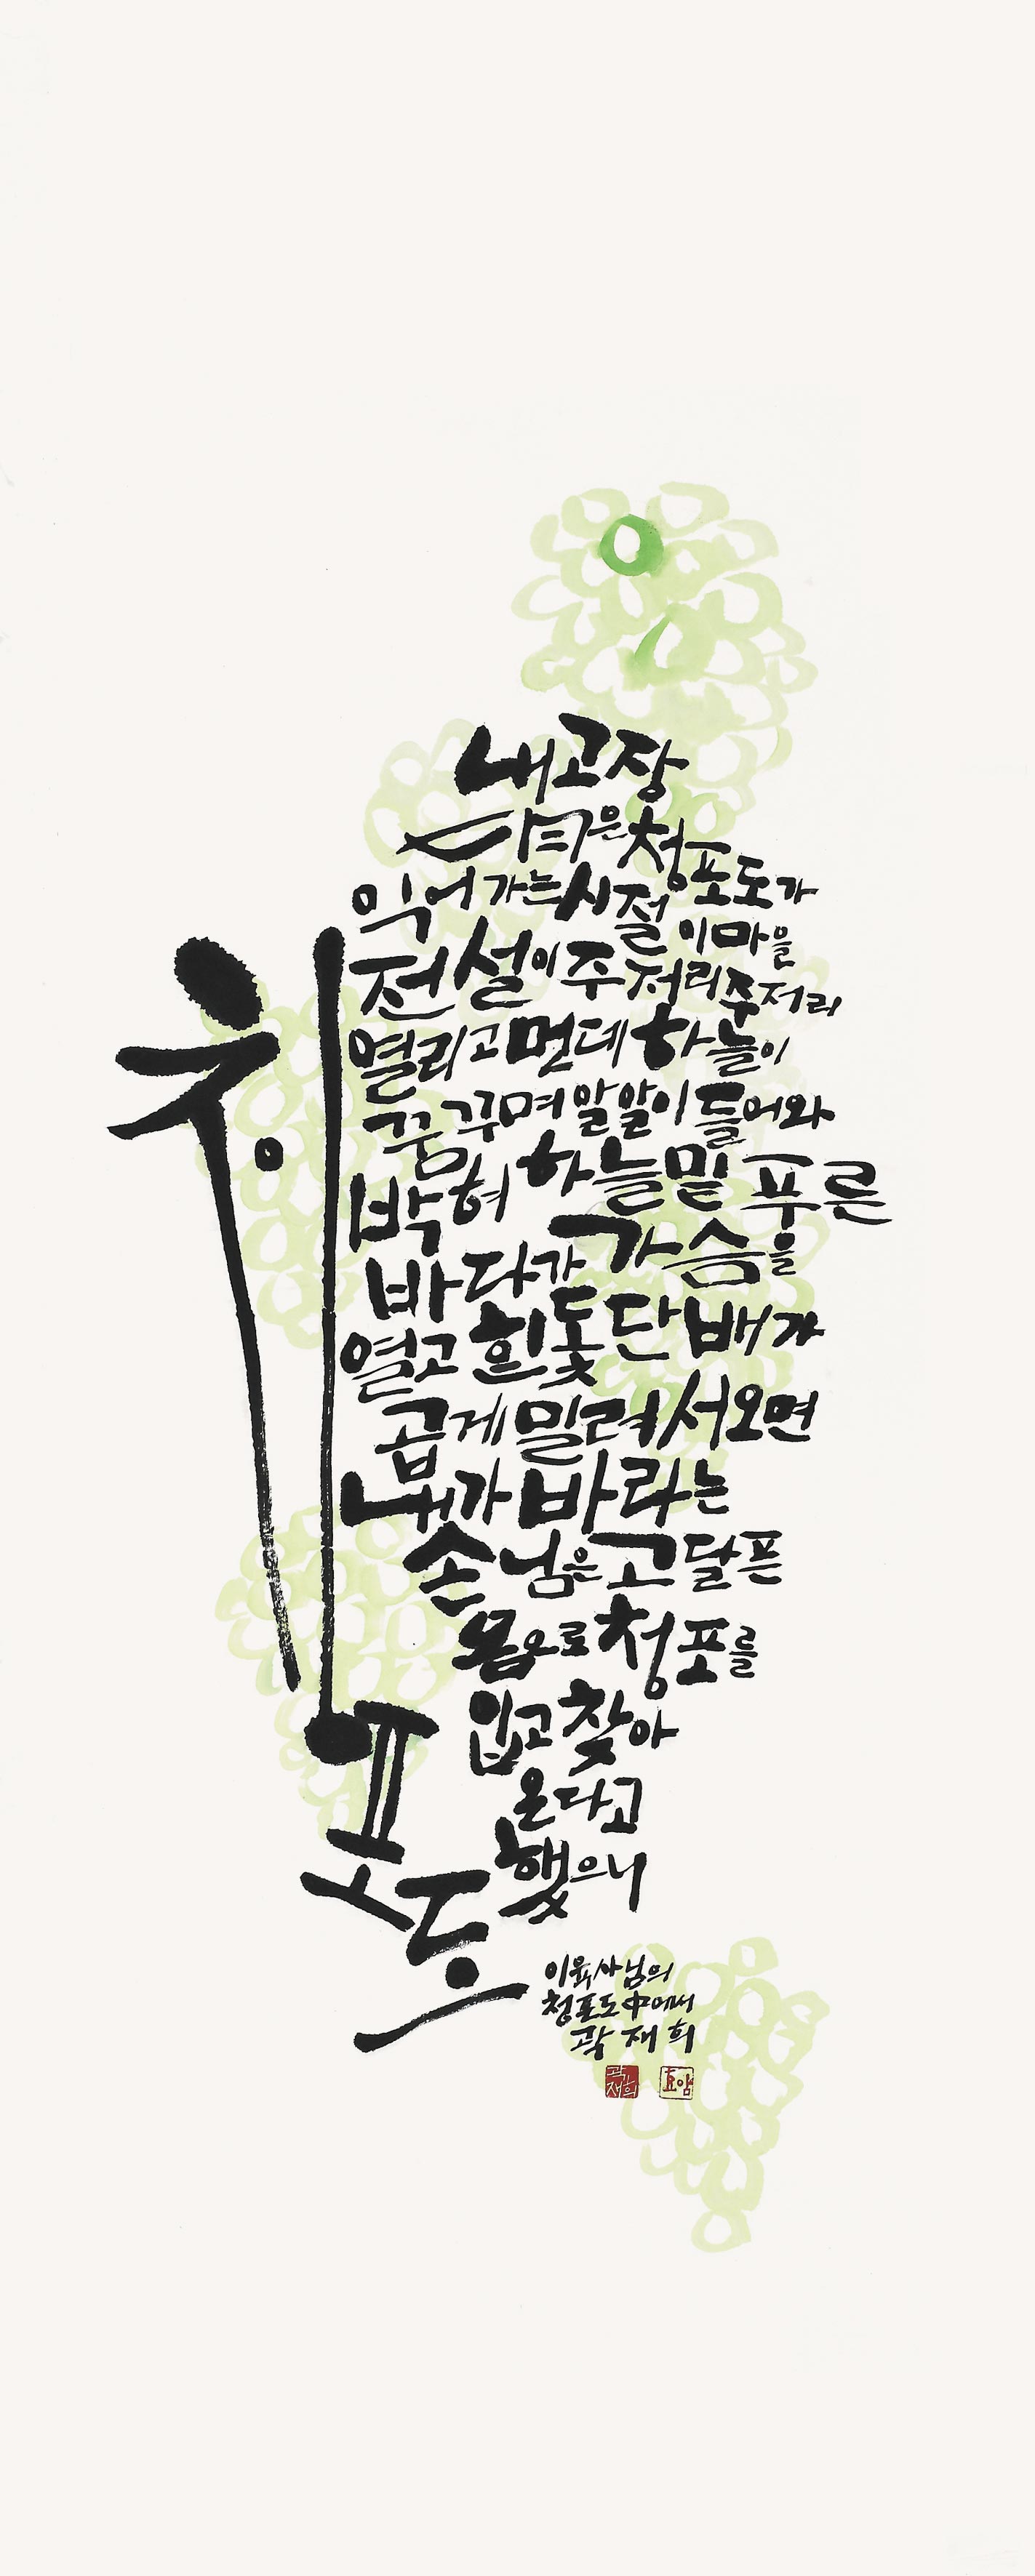 청포도
내고장
七月은청포도가
익어가는시절 이마을
전설이주저리주저리
열리고먼데하늘이
꿈꾸며알알이들어와
박혀 하늘밑 푸른
바다가가슴을
열고흰돛단배가
곱게밀려서오면
내가바라는
손님은고달픈
몸으로청포를
입고찾아
온다고
했으니
이육사님의
청포도中에서
곽재희
곽재희
효암